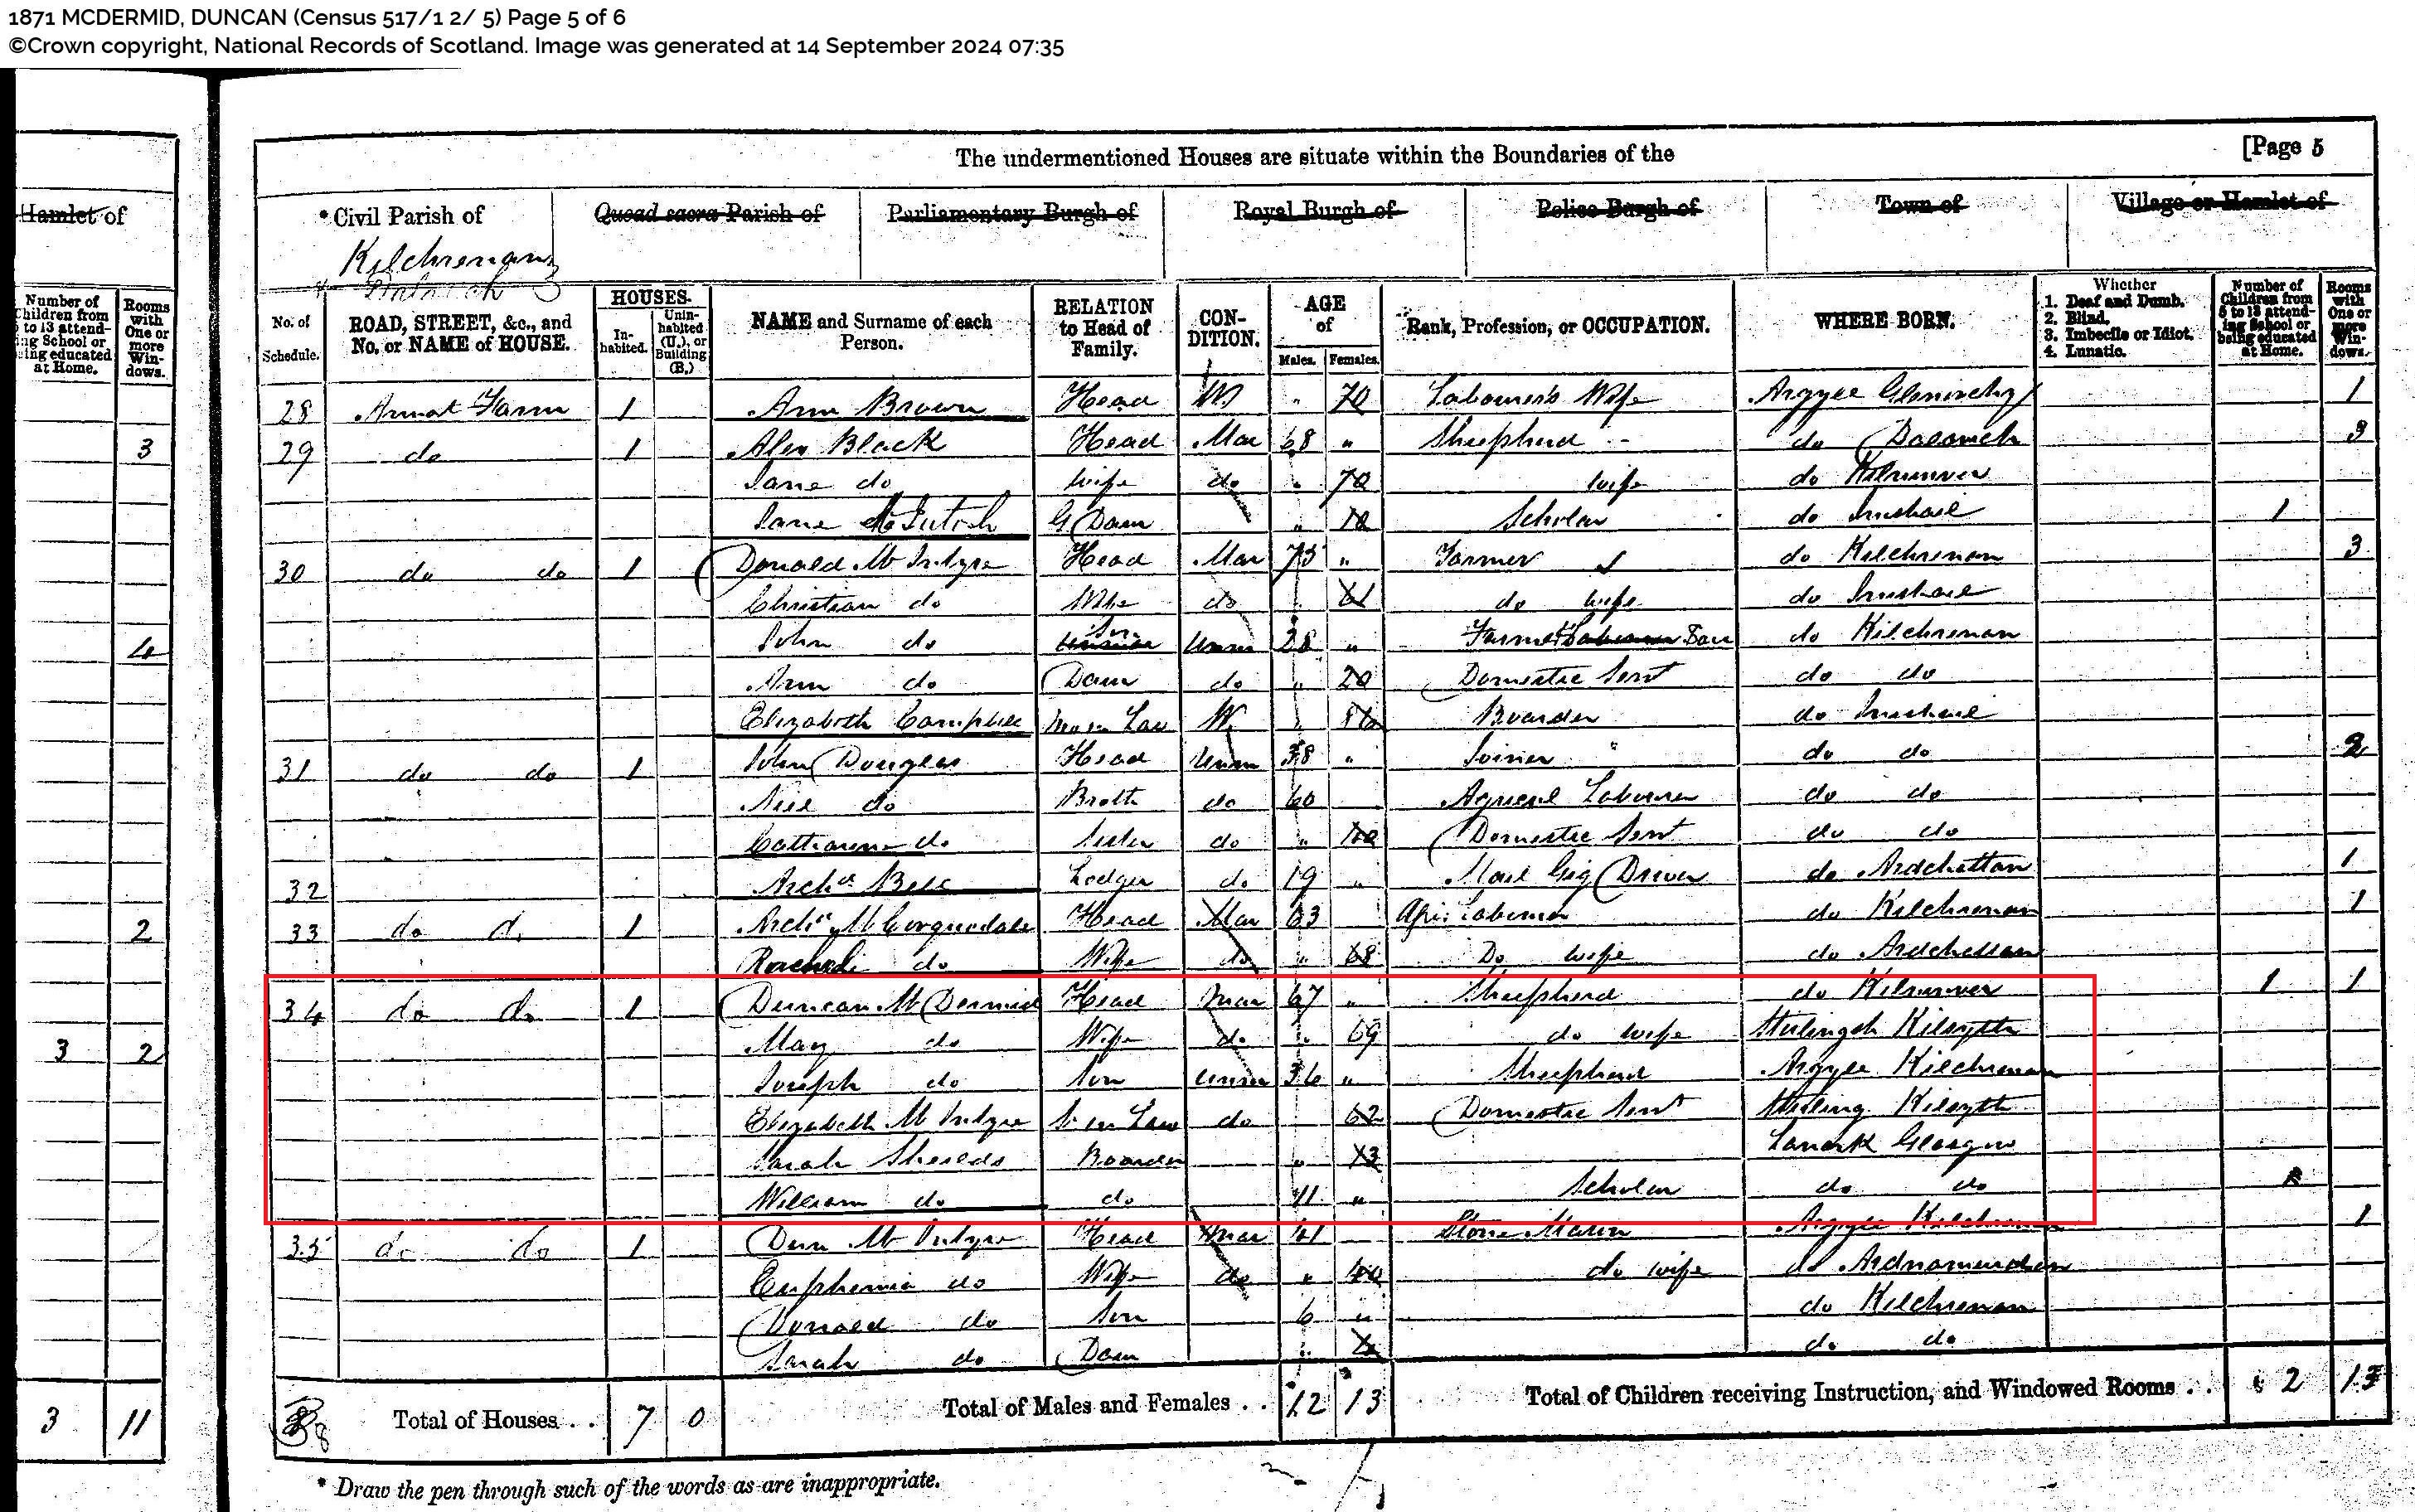 1871 MCDERMID, DUNCAN (Census 517/1 2/ 5) Page 5 of 6
©Crown copyright, National Records of Scotland. Image was generated at 14 September 2024 07:35
The undermentioned Houses are situate within the Boundaries of the [Page 5
Hamlet of
*Civil Parish of Quoad sacra Parish of Parliamentary Burgh of Royal Burgh of Police Burgh of Town of Village or Hamlet of
Kilchrenan
& Dalavich
Number of Children from 5 to 13 attending School or being educated at Home. Rooms with One or more Windows.
No. of Schedule. ROAD, STREET, &c., and No. or NAME of HOUSE. HOUSES. Inhabited. Uninhabited (U.), or Building (B.) NAME and Surname of each Person. RELATION to Head of Family. CONDITION. AGE of Males. Females. Rank, Profession, or OCCUPATION. WHERE BORN. Whether 1. Deaf and Dumb. 2. Blind. 3. Imbecile or Idiot. 4. Lunatic. Number of Children from 5 to 13 attending School or being educated at Home. Rooms with One or more Windows.
28 Annat Farm 1 Ann Brown Head W " 70 Labourer's Wife Argyle Glenorchy 1
3
29 do 1 Alex Black Head Mar 68 " Sheepherd do Dalavich 3
Jane do Wife do " 70 wife do Kilninver
Jane McIntosh G Daur " 10 Scholar do Inishail 1
30 do do 1 Donald McIntyre Head Mar 75 " Farmer do Kilchrenan 3
Christian do Wife do " 61 do wife do Inishail
4
John do Son Unm 28 " Farmer Son do Kilchrenan
Ann do Daur do " 20 Domestic Servt do do
Elizabeth Campbell in Law W " 86 Boarder do Inishail
31 do do 1 John Douglas Head Unm 38 " Joiner do do 2
Neil do Broth do 60 Labourer do do
Catharine do Sister do " 40 Domestic Servt do do
32 Archd Bell Lodger do 19 " Mail Gig Driver do Ardchattan 1
2
33 do do 1 Archd McCorquodale Head Mar 63 Labourer do Kilchrenan 1
Rachel do Wife do " 68 Do wife do Ardchattan
34 do do 1 Duncan McDermid Head Mar 67 " Sheepherd do Kilninver 1 1
3 2
Mary do Wife do " 69 do wife Stirlingsh Kilsyth
Joseph do Son Unm 36 " Sheepherd Argyle Kilchrenan
Elizabeth McIntyre S in Law do 62 Domestic Servt Stirling Kilsyth
Sarah Shields Boarder " 13 Lanark Glasgow
William do do 11 " Scholar do do
35 do do 1 Dun McIntyre Head Mar 41 Stone Mason Argyle Kilchrenan 1
Euphemia do Wife do " 40 do wife do Ardnamurchan
Donald do Son 6 " do Kilchrenan
Sarah do Daur " do do
3 11
Total of Houses . . 7 0 Total of Males and Females . . 12 13 Total of Children receiving Instruction, and Windowed Rooms . . 2 13
* Draw the pen through such of the words as are inappropriate.